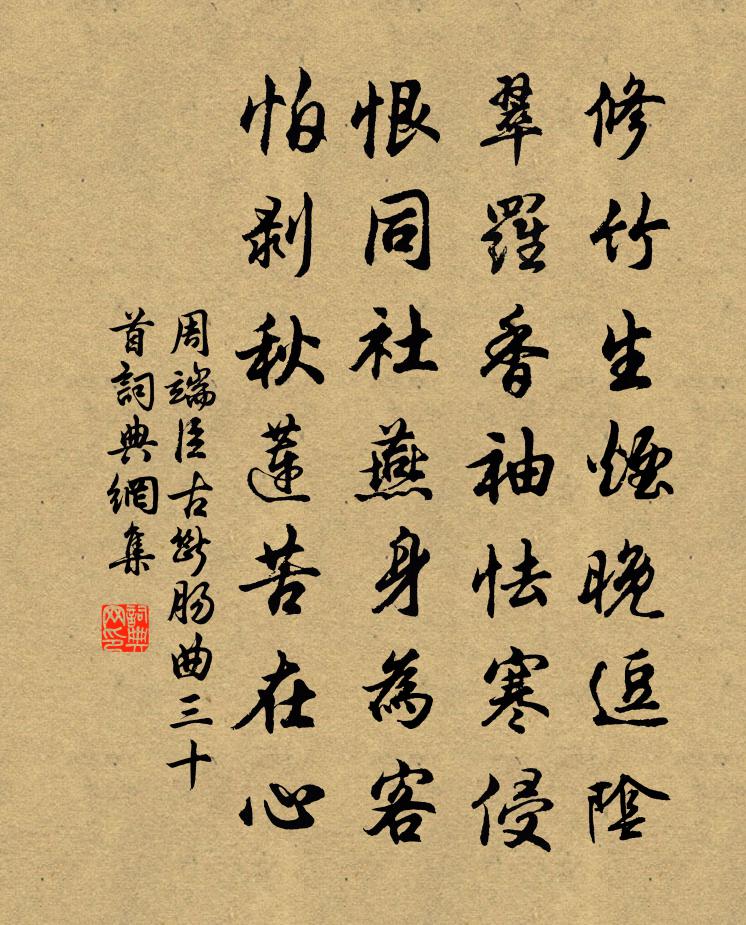 修竹生煙晚逗陰
翠羅香袖怯寒侵
恨同社燕身為客
怕剥秋蓮苦在心
周端臣古斷肠曲三十
首詞典網集
詞典网印